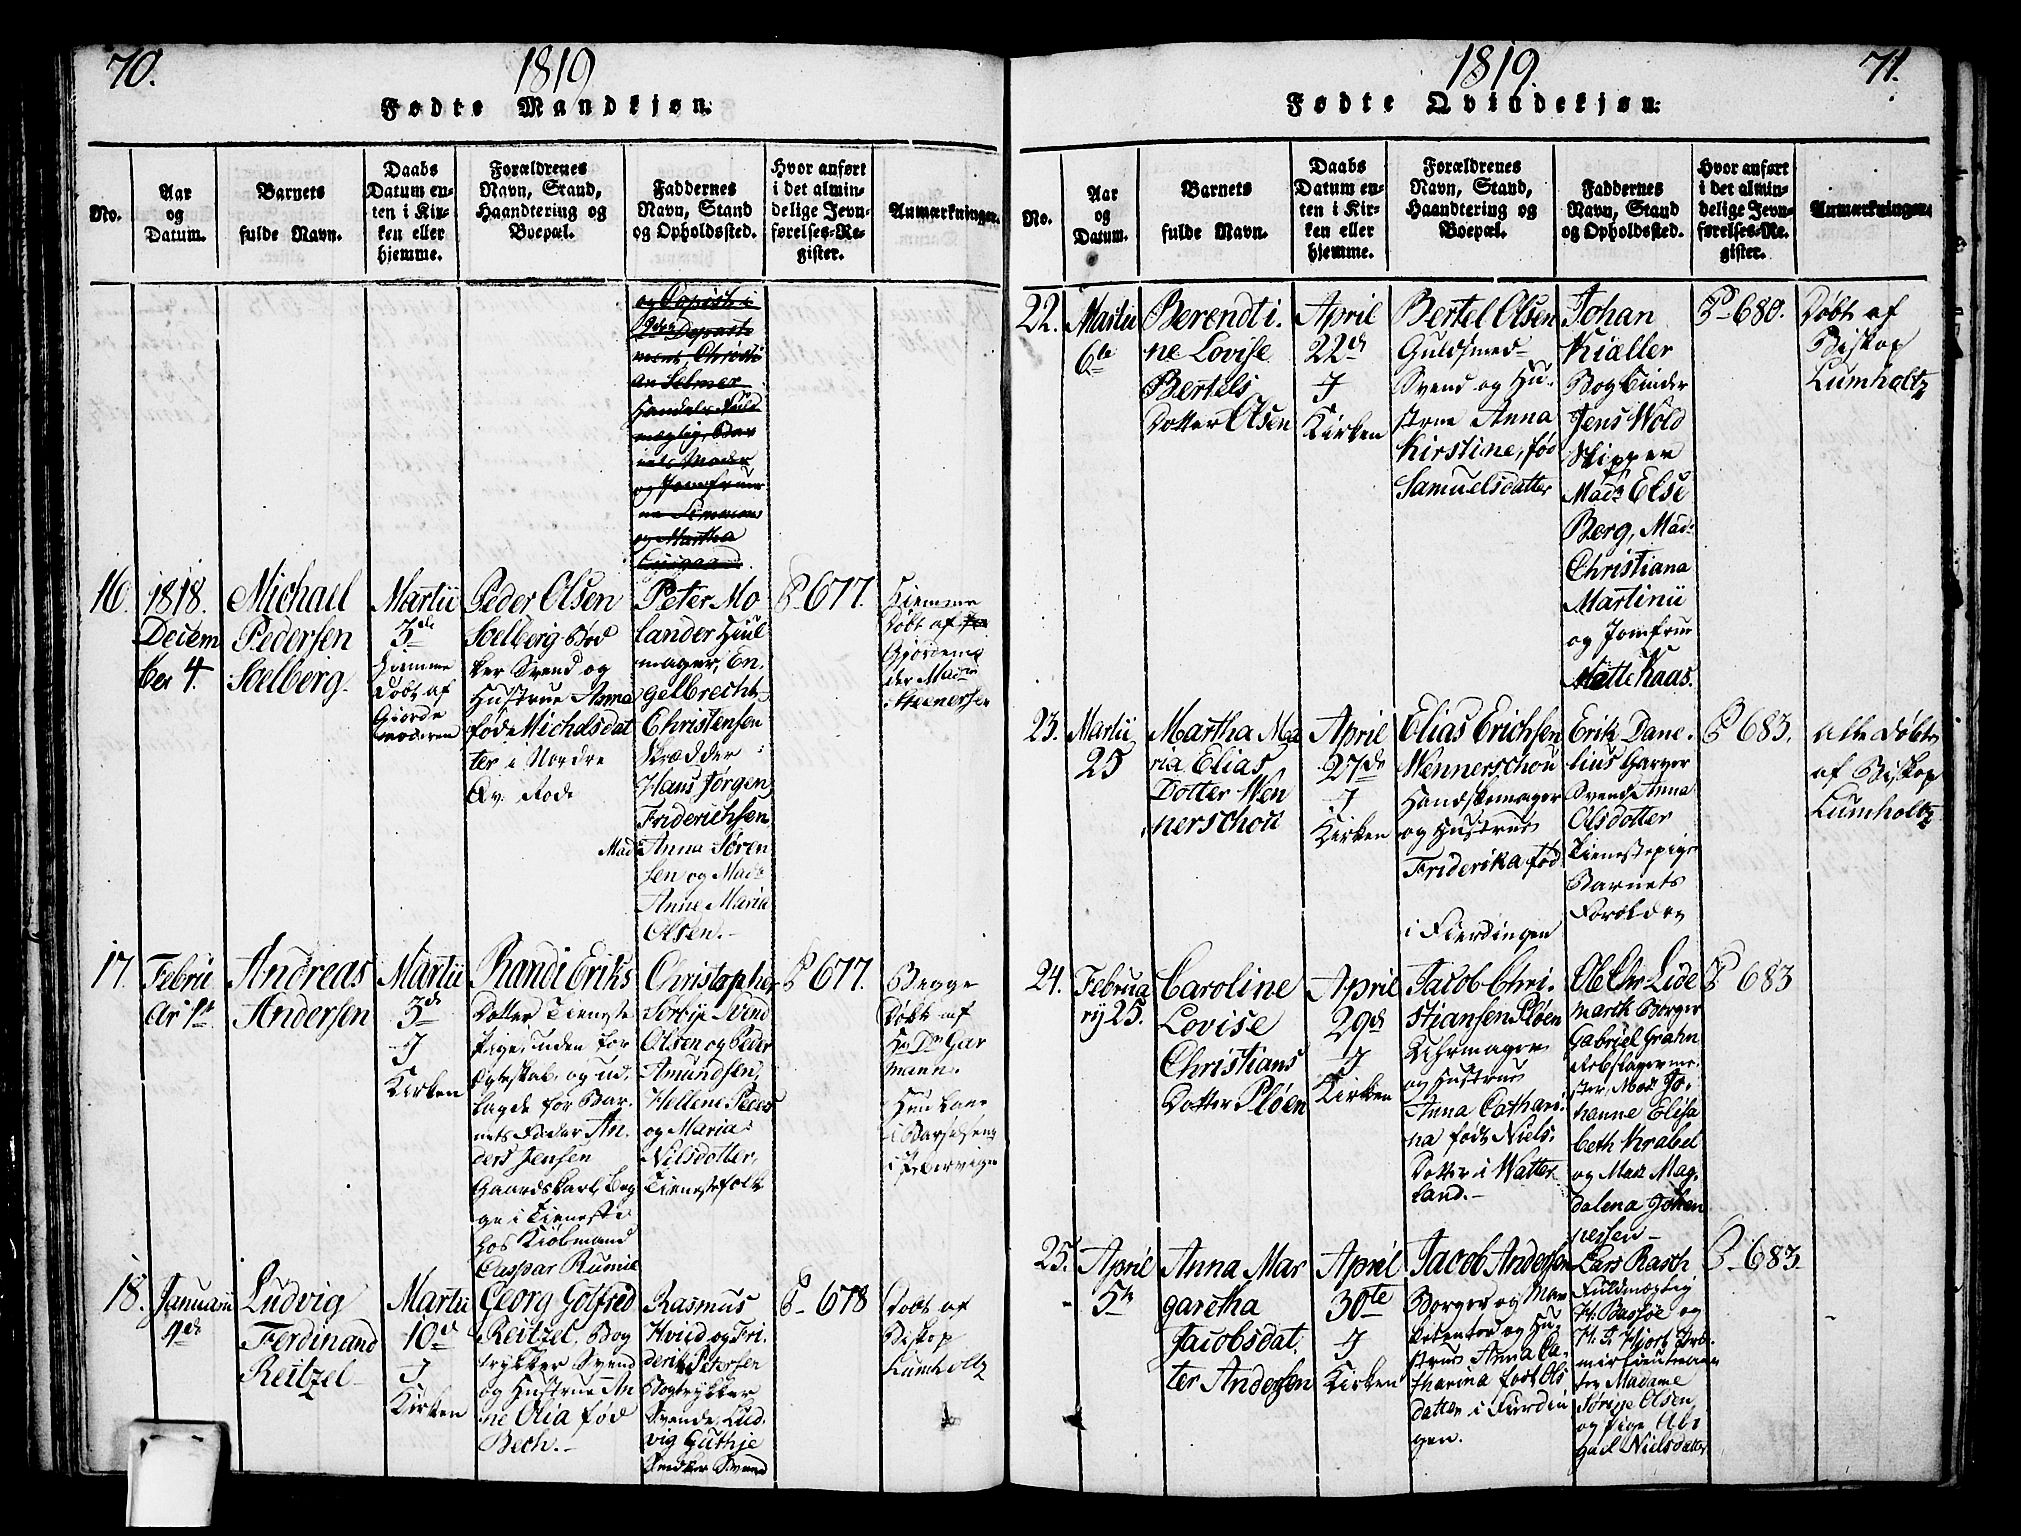 70.
1819
Fødte Mandkjøn.
No.
Aar
og
Datum.
Barnets
fulde Navn.
Daabs
Datum en-
ten i Kir-
ken eller
hjemme.
Forældrenes
Navn, Stand,
Haandtering og
Boepæl.
Faddernes
Navn, Stand
og Opholdssted.
Hvor anført
i det almin-
delige Jevn-
førelses-Re-
gister.
Anmærkninger.
og Copist i
2den Departe
ment, Christi
an Selmer
Handels Fuld
mægtig, Bar
nets Moder
og Jomfrue
og Martha
16.
1818.
Decem
ber 4.
Michael
Pedersen
Soelberg.
Martii
3de
Hjemme
Døbt af
Giorde
moderen
Peder Olsen
Soelberg Bød
ker Svend og
Hustrue Anna
føde Michelsdat
ter i Nordre
Qv. Rode
Peter Mo
lander Hiul
mager, En
gelbrecht
Christensen
Skrædder
Hans Jørgen
Friderichsen,
Mad: Anna Søren
sen og Mad:
Anne Maria
Olsen.
P 677.
Hiemme
døbt af
Giordemo
der Mad:
17.
Febru
ar 1ste
Andreas
Andersen
Martii
3de
I
Kirken
Randi Eriks
Dotter Tieneste
Pige, uden for
Egteskab, og ud,
lagde for Bar,
nets Fader An,
ders Jensen
Gaardskarl, Beg
ge i Tieneste
hos Kiøbmand
Caspar
Christopher
Sørbye Svend
Olsen og Peder
Amundsen,
Hellene Peders
og Maria
Nilsdotter,
Tienestefolk
P 677.
Begge
Døbt af
Hr Dn Gar
mann.
Hun laae
i Barselseng
i Pibervigen
18.
Januarii
9de
Ludvig
Ferdinand
Reitzel
Martii
10de
I
Kirken
Georg Gotfred
Reitzel, Bog
trykker Svend
og Hustrue An
ne Olia fød
Bech.
Rasmus
Hviid og Fri
derik Petersen
Bogtrykker
Svende, Lud
vig Guthje
Snedker Svend
P 678
Døbt af
Biskop
Lumholtz
1819.
71.
Fødte Qvindekjøn.
No.
Aar
og
Datum.
Barnets
fulde Navn.
Daabs
Datum en-
ten i Kir-
ken eller
hjemme.
Forældrenes
Navn, Stand,
Haandtering og
Boepæl.
Faddernes
Navn, Stand
og Opholdssted.
Hvor anført
i det almin-
delige Jevn-
førelses-Re-
gister.
Anmærkninger.
22.
Martii
6te
Berendti
ne Lovise
Bertels
Dotter Olsen
April
22de
I
Kirken
Bertel Olsen
Guldsmed
Svend og Hu
strue Anna
Kirstine, fød
Samuelsdatter
Johan
Kialler
Bogbinder
Jens Wold
Skipper
Mad: Else
Berg, Mad:
Christiana
Martinii
og Jomfrue
Mætte Kaas.
P 680.
Døbt af
Biskop
Lumholtz
23.
Martii
25
Martha Ma
ria Elias
Dotter Wen
nerschou
April
27de
I
Kirken
Elias Erichsen
Wennerschou
Handskemager
og Hustrue
Friderika fød
i Fierdingen
Erik Dane
lius Garver
Svend Anna
Olsdotter
Tienestepige
Barnets
Forældre
P 683.
alle døbte
af Biskop
Lumholtz
24.
Februa
ry 25.
Caroline
Lovise
Christians
Dotter Pløen
April
29de
I
Kirken
Jacob Chri
stiansen Pløen
Uhrmager
og Hustrue
Anna Cathari
na født Niels
Dotter i Watter
land.
Ole Chr Lide
mark Borger
Gabriel Grahn
Rebslagerme
ster, Mad: Jo
hanne Elisa
beth Krabel
og Mad: Mag
dalena Johan
nessen
P 683
25.
April
5te
Anna Mar
garetha
Jacobsdat
ter Andersen
April
30te
I
Kirken
Jacob Andersen
Borger og Mar
ketenter og Hu
strue Anna Ca
tharina født Ols
datter i Fierdin
gen.
Lars Rasch
Fuldmægtig
og
Hjort
Madame
Sørine Olsen,
og Pige Abi
gael Nielsdatter
P 683